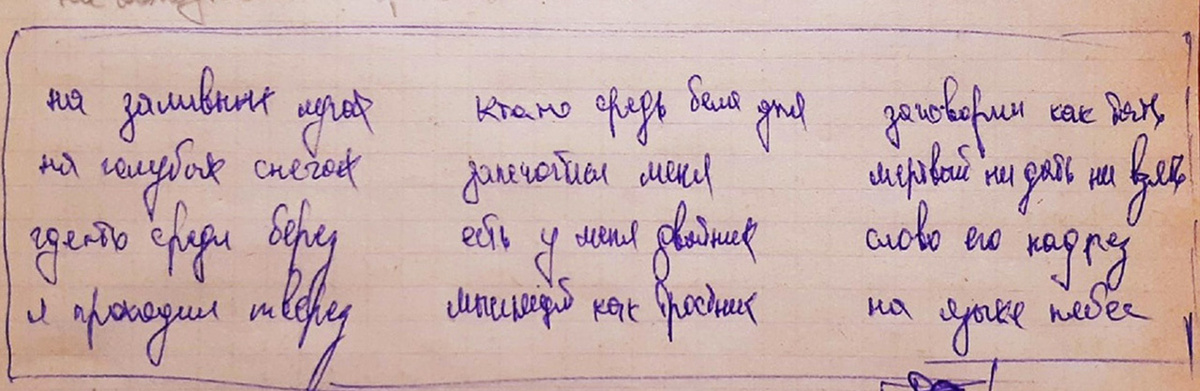 на заливных лугах
на голубых снегах
гдето среди берез
я проходил тверез
ктото средь бела дня
запечатлел меня
есть у меня двойник
мыслящий как тростник
заговорил как тать
мертвый ни дать ни взять
слово его надрез
на языке небес